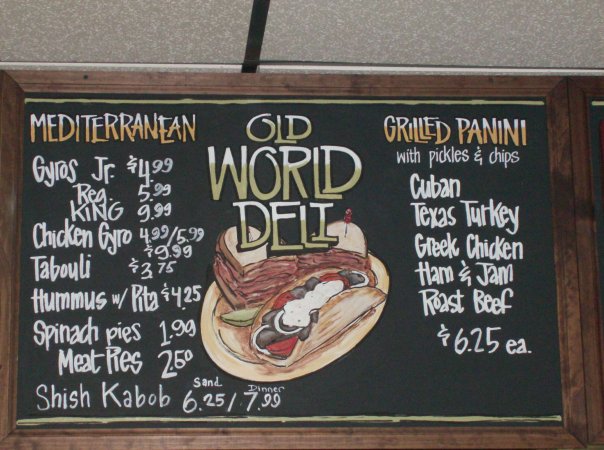 MEDITERRANEAN
Gyros Jr. $4.99
Reg. 5.99
KING 9.99
Chicken Gyro 4.99/5.99
$9.99
Tabouli $3.75
Hummus w/ Pita $4.25
Spinach pies 1.99
Meat Pies 2.50
Shish Kabob Sand 6.25/ Dinner 7.99
OLD
WORLD
DELI
GRILLED PANINI
with pickles & chips
Cuban
Texas Turkey
Greek Chicken
Ham & Jam
Roast Beef
$6.25 ea.